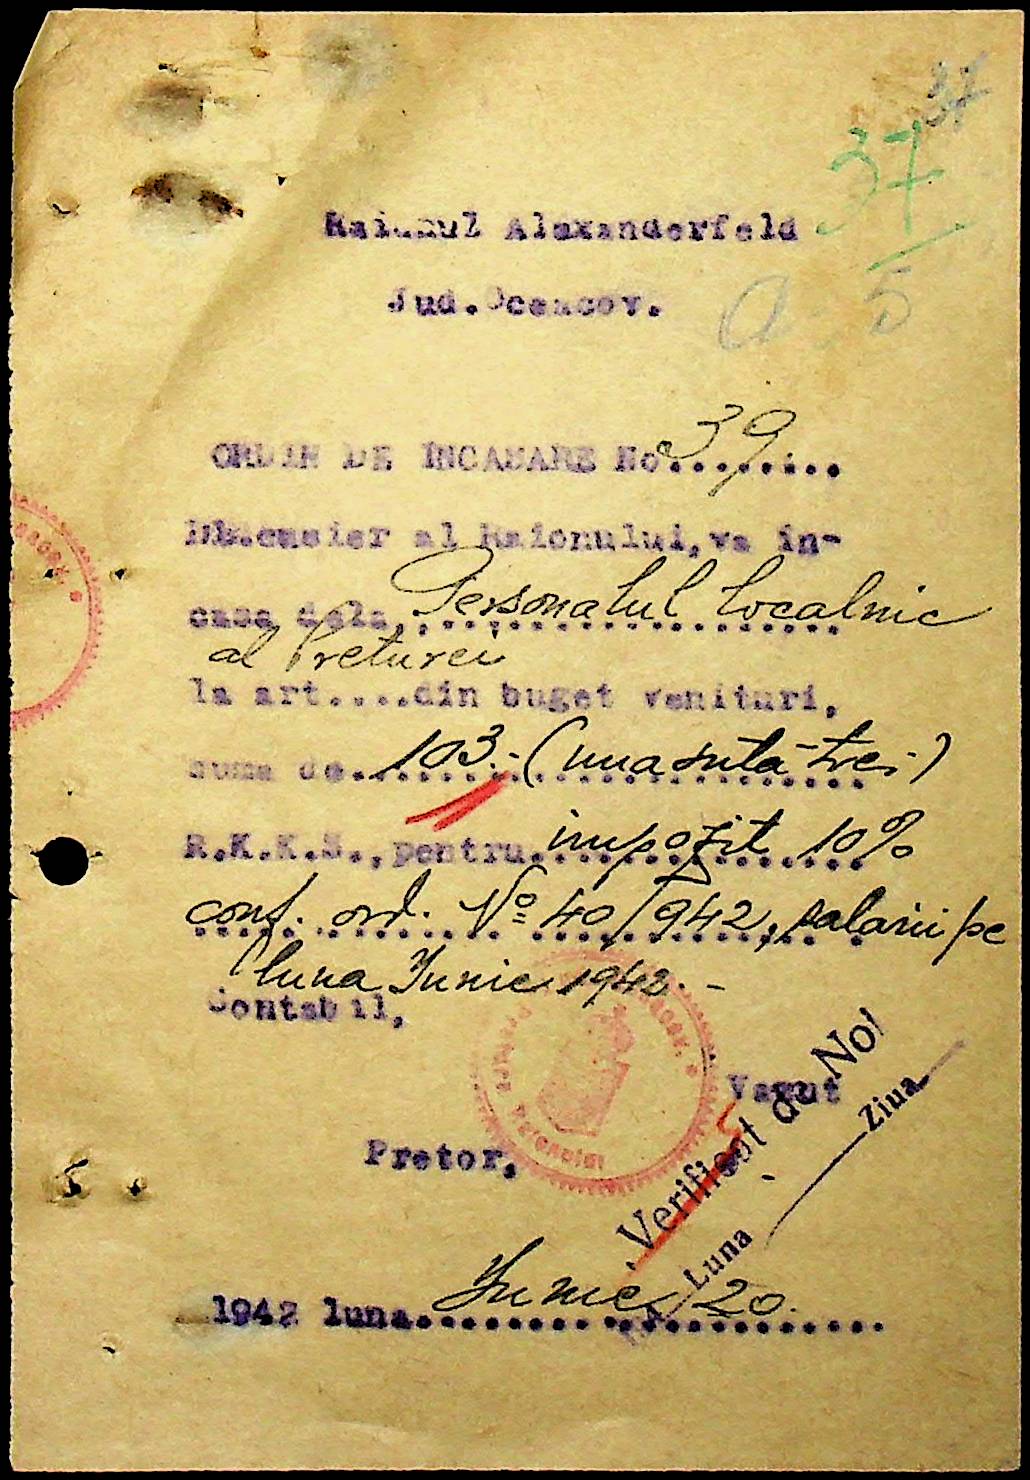 37
37
5
Raionul Alexanderfeld
Jud. Oceacov.
ORDIN DE INCASARE No. 39
casier al Raionului, va in-
casa dela Personalul localnic
al Preturei
la art....din buget venituri,
suma de 103.- (una sută trei)
R.K.K.S., pentru impozit 10%
conf. ord. No 40/942, salarii pe
luna Iunie 1942. -
Contabil,
Vazut
Pretor,
Verificat de Noi
Luna Ziua
1942 luna Iunie 20.